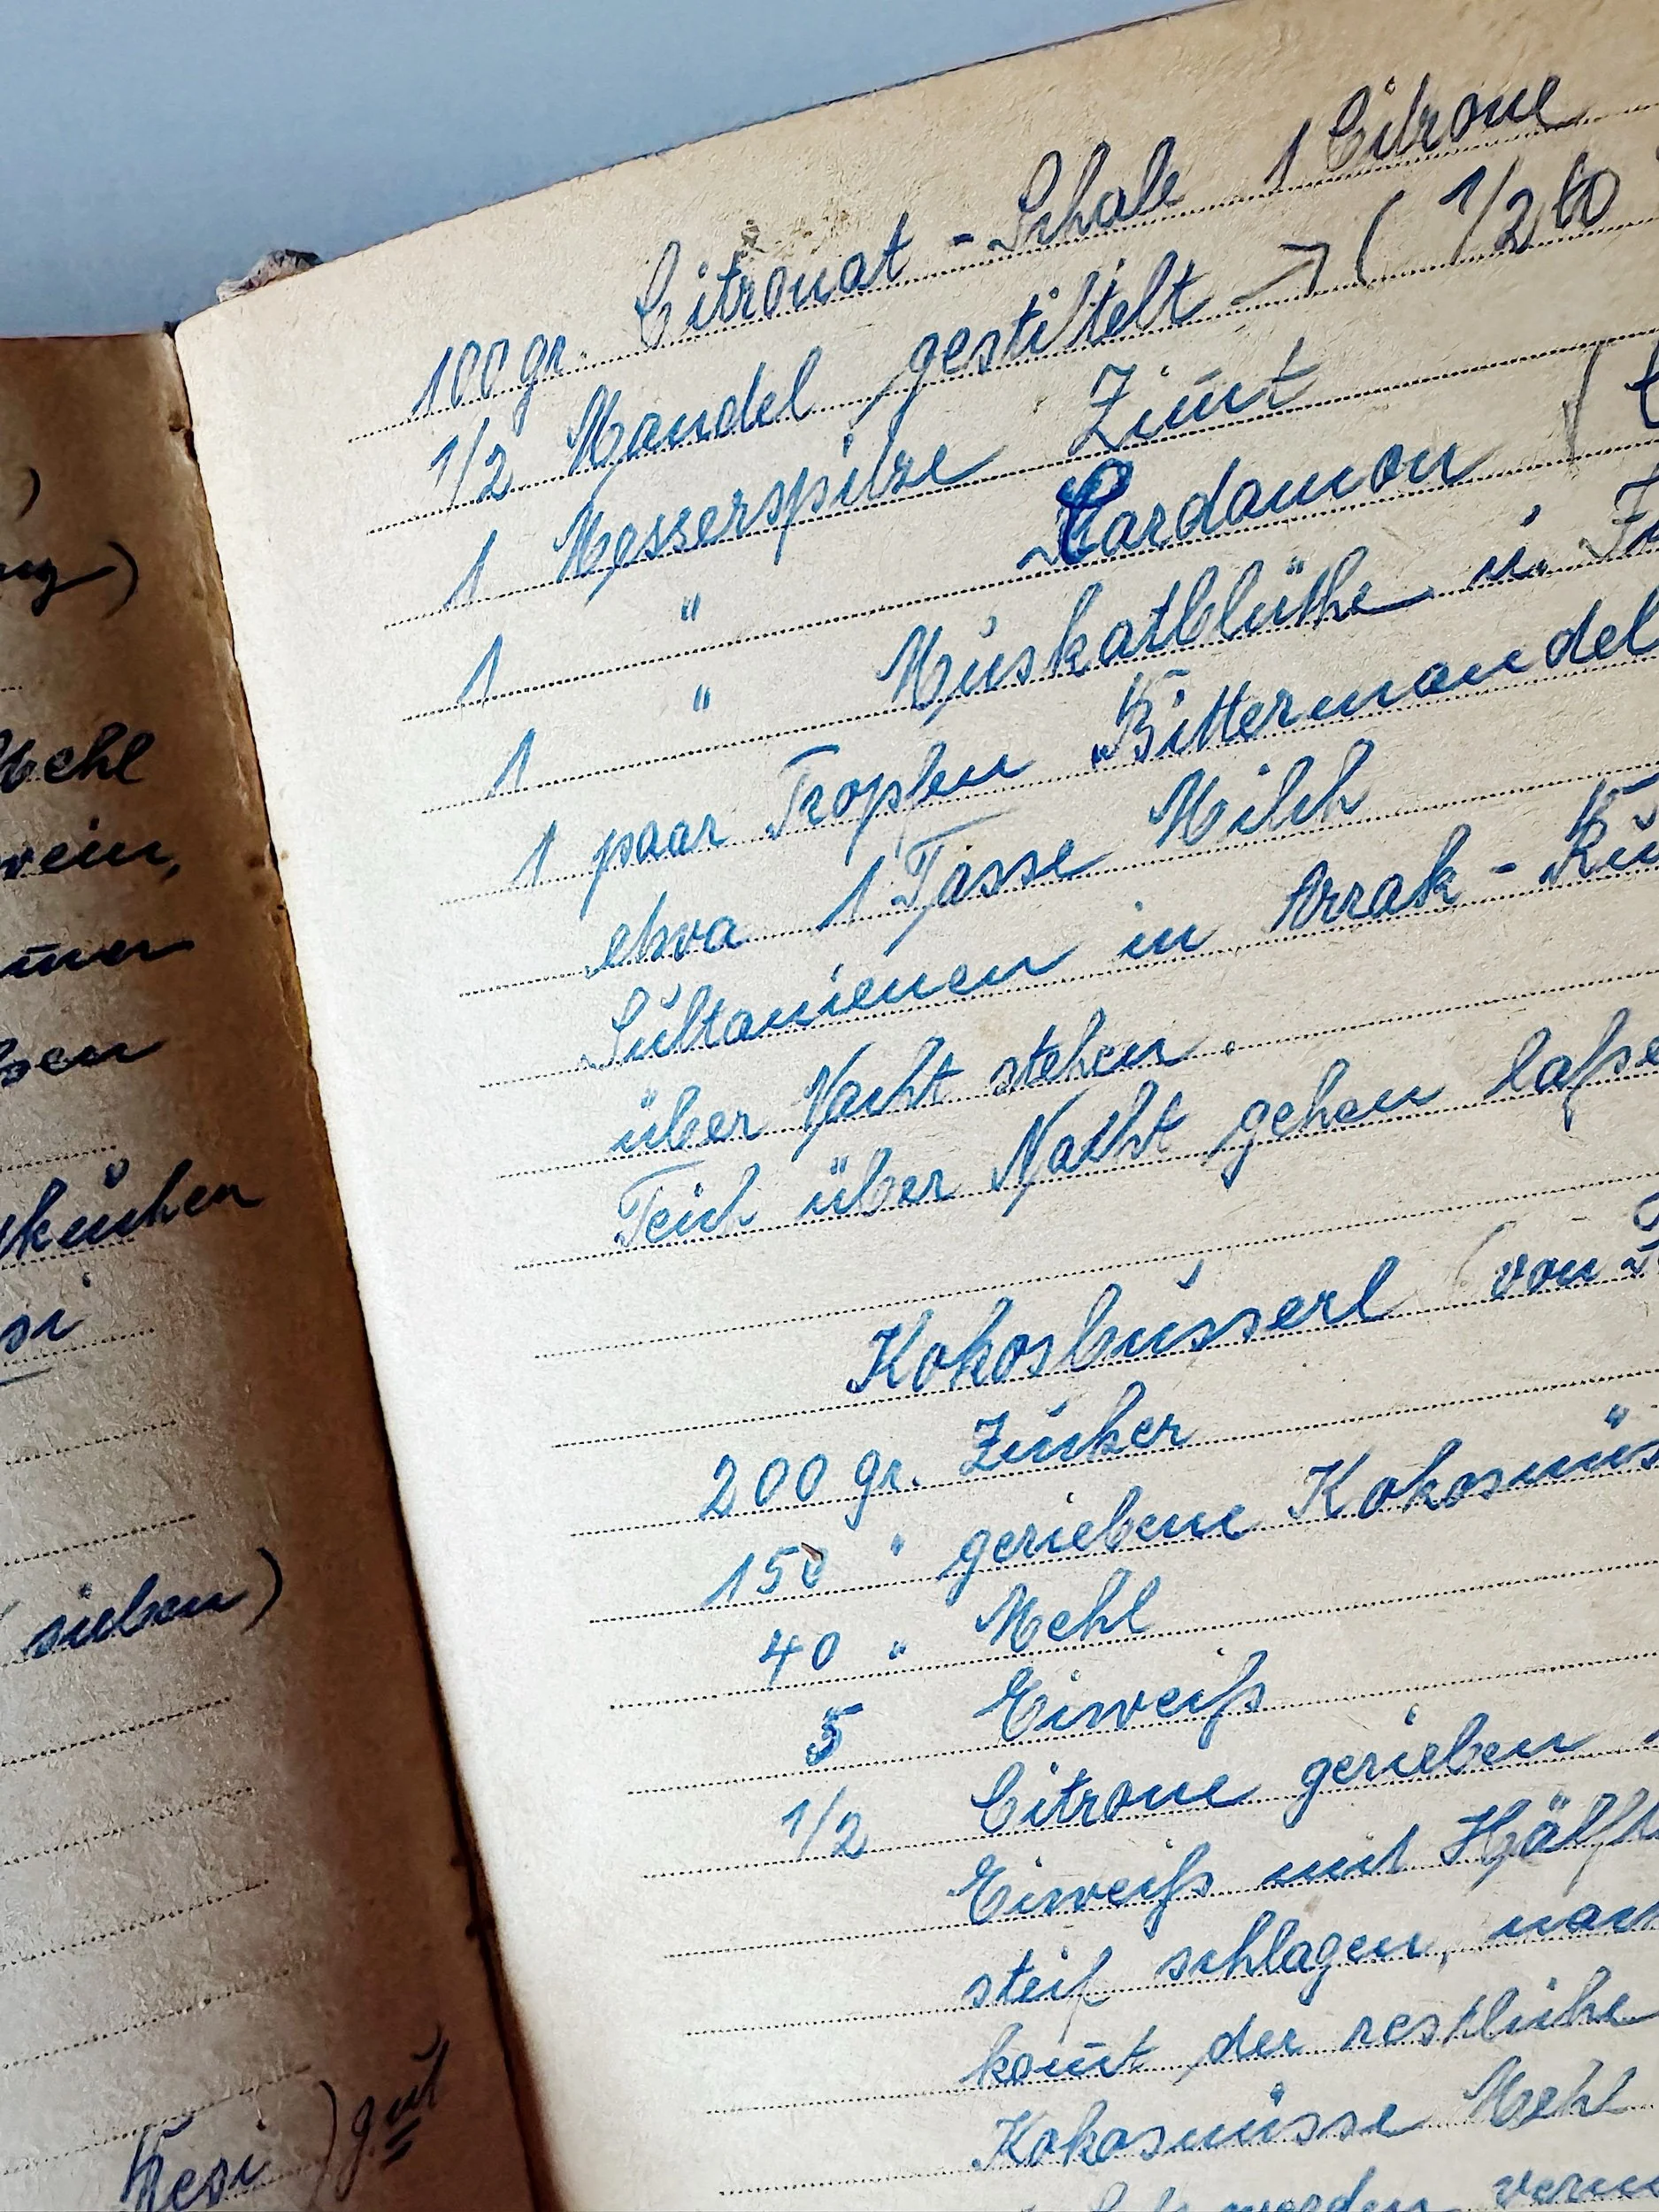 ehl
wein,
sen
kuchen
si
sieben)
Resi) gut
100 gr. Citronat - Schale 1 Citrone
1/2 Mandel gestiftelt → ( 1/2 to
1 Messerspitze Zim̄t
1 " Cardamon (
1 " Muskatblüthe u.
1 paar Tropfen Bittermandel
etwa 1 Tasse Milch
Sultanienen in Arrak - Ru
über Nacht stehen.
Teich über Nacht gehen laße
Kokosbusserl (von
200 gr. Zucker
150 " geriebene Kokosnüs
40 " Mehl
5 Eiweiß
1/2 Citrone gerieben
Eiweiß mit Hälft
steif schlagen, nac
kom̄t der restliche
Kokosnüsse Mehl
werden verm